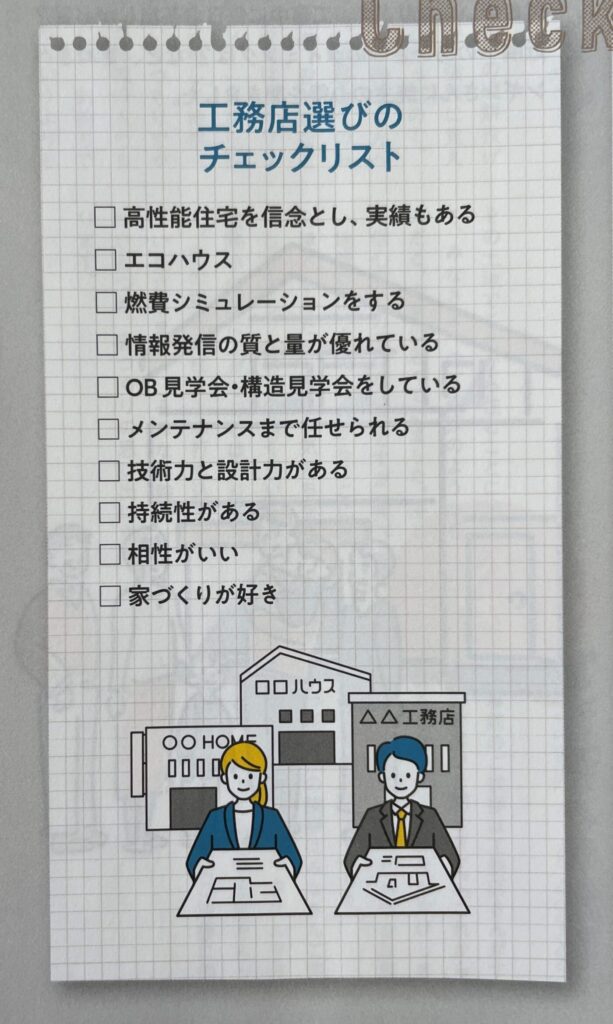 Check
工務店選びの
チェックリスト
□ 高性能住宅を信念とし、実績もある
□ エコハウス
□ 燃費シミュレーションをする
□ 情報発信の質と量が優れている
□ OB見学会・構造見学会をしている
□ メンテナンスまで任せられる
□ 技術力と設計力がある
□ 持続性がある
□ 相性がいい
□ 家づくりが好き
□□ハウス
△△工務店
○○HOME